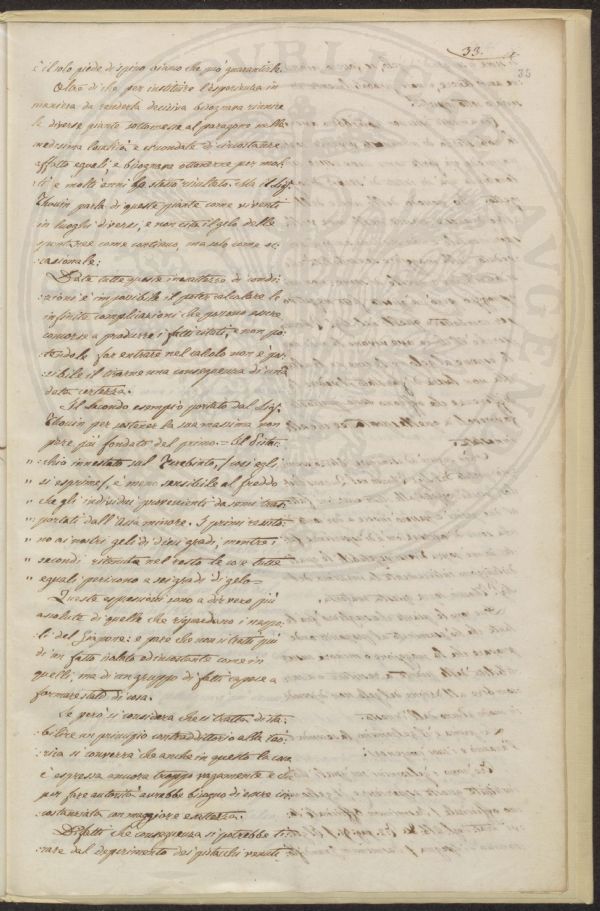 33.
35
è il solo piede di spino ariano che può guarentirle.
Oltre di che per instituire l'esperienza in
maniera da renderla decisiva bisognava riunire
le diverse piante sottomesse al paragone nella
medesima località, e circondate di circostanze
affatto eguali, e bisognava ottenerne per mol-
ti e molti anni lo stesso risultato. Ma il Sig.
Thouin parla di queste piante come viventi
in luoghi diversi, e non cita il gelo delle
come continuo, ma solo come oc-
:casionale:
Data tutte queste inesattezze di condi-
:zioni è impossibile il poter calcolare le
infinite complicazioni che possono essere
concorse a produrre i fatti citati, e non po-
:tendole far entrare nel calcolo non è pos-
:sibile il trarne una conseguenza di una
data certezza.
Il secondo esempio portato dal Sig.
Thouin per sostener la sua massima non
pare più fondato del primo. = Il Pistac-
" chio innestato sul Terebinto, (così egli
" si esprime), è meno sensibile al freddo
" che gli individui provenienti da semi tras-
" portati dall'Asia minore. I primi resisto-
" no ai nostri geli di dieci gradi, mentre i
" secondi ritenuta nel resto le cose tutte
" eguali periscono a sei gradi di gelo =
Queste esposizioni sono a dir vero più
assolute di quelle che riguardano i nespo-
li del Giapone: e pare che non si tratti più
di un fatto isolato ed incostante come in
quelli; ma di un gruppo di fatti capace a
formare stato di cosa.
Se però si considera che si tratta di sta-
:bilire un principio contraddittorio alla teo-
:rica si converrà che anche in questo la cosa
è espressa ancora troppo vagamente e che
per fare autorità avrebbe bisogno di essere cir-
costanziata con maggiore esattezza.
Difatti che conseguenza si potrebbe ti-
:rare dal deperimento dei pistacchi venuti